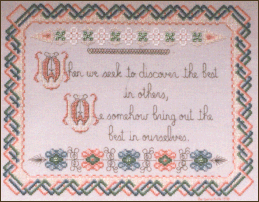 When we seek to discover the best
in others,
We somehow bring out the
best in ourselves.